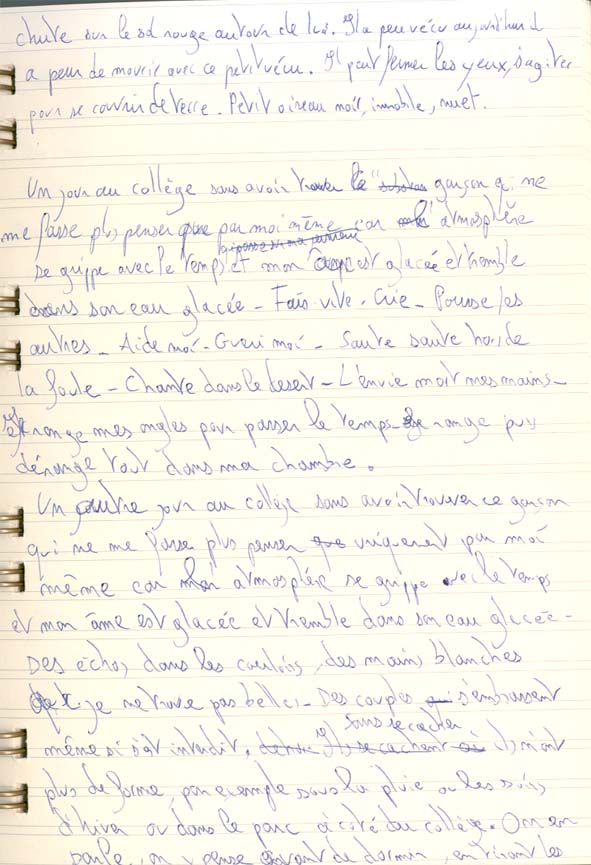 chute sur le sol rouge autour de lui. Il a peu vécu aujourd'hui il
a peur de mourir avec ce petit vécu. Il peut fermer les yeux, s'agiter
pour se couvrir de terre. Petit oiseau noir, immobile, muet.
Un jour au collège sans avoir trouver le garçon qui ne
me fasse plus penser que par moi même car mon atmosphère
se grippe avec le temps et mon âme est glacée et tremble
dans son eau glacée - Fais vite. Crie - Pousse les
autres - Aide moi - Gueri moi - Saute saute hors de
la foule - Chante dans le desert - L'envie mort mes mains -
Je ronge mes ongles pour passer le temps - Je range puis
dérange tout dans ma chambre.
Un autre jour au collège sans avoir trouver ce garçon
qui ne me fasse plus penser uniquement par moi
même car mon atmosphère se grippe avec le temps
et mon âme est glacée et tremble dans son eau glacée -
Des échos dans les couloirs, des mains blanches
que je ne trouve pas belles - Des couples s'embrassent
même si c'est interdit, sans se cacher ils n'ont
plus de forme, par exemple sous la pluie ou les soirs
d'hiver ou dans le parc à côté du collège. On en
parle, on y pense avant de dormir, en tirant les